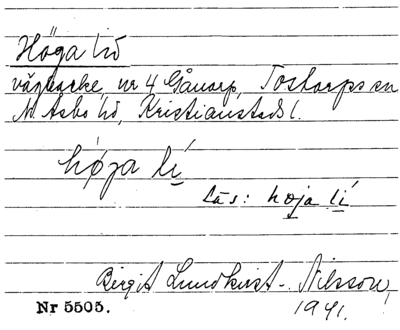 Höga lid
vägbacke, nr 4 Gånarp, Tostarps sn
N. Åsbo hd, Kristianstads l.
høja lí
Läs: hoja lí
Birgit Lundkvist-Nilsson,
1941.
Nr 5505.